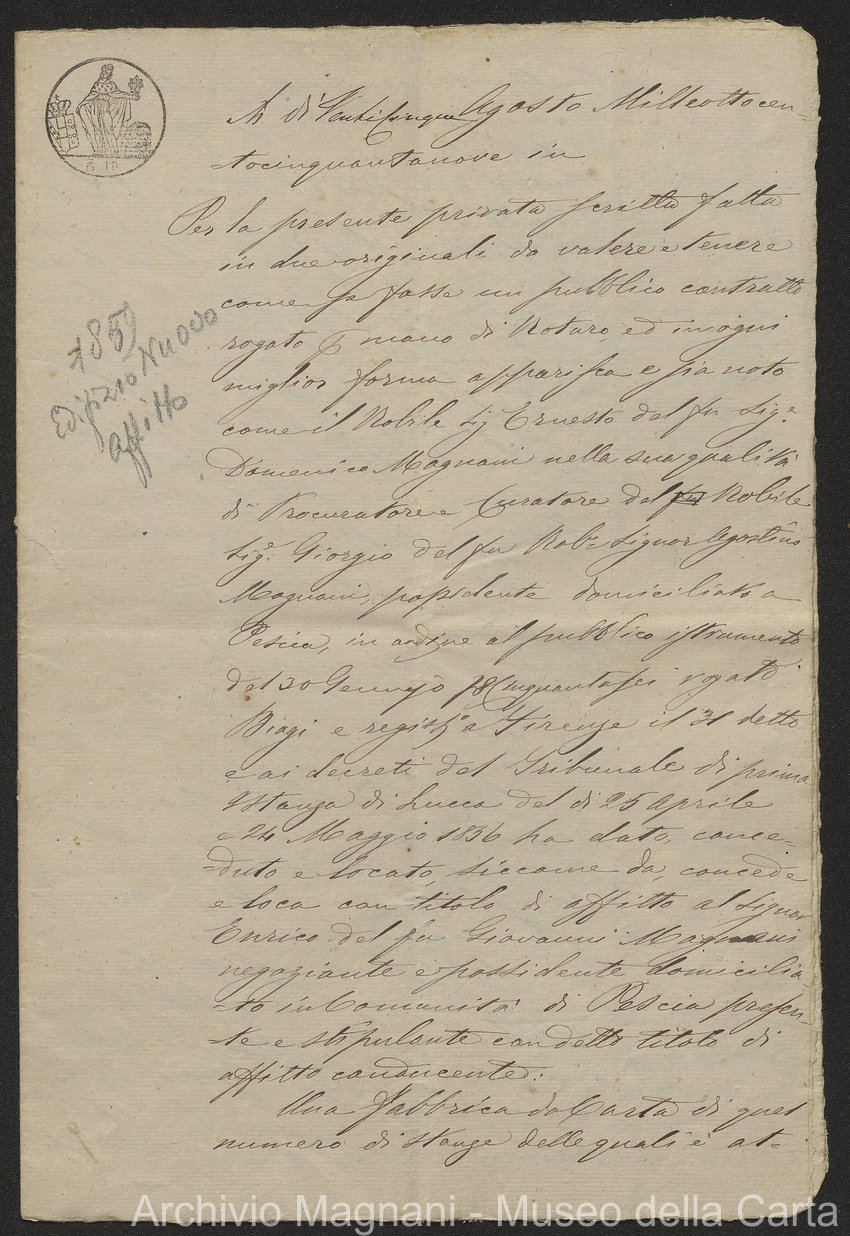 A dì Venticinque Agosto Milleottocen-
=tocinquantanove in
Per la presente privata scritta fatta
in due originali da valere e tenere
come se fosse un pubblico contratto
rogato p mano di Notaro, ed in ogni
miglior forma apparisca e sia noto
come il Nobile Sig Ernesto del fu Sig.e
Domenico Magnani nella sua qualità
di Procuratore e Curatore del Nobile
Sig.e Giorgio del fu Nob.e Signor Agostino
Magnani, possidente domiciliato a
Pescia, in ordine al pubblico istrumento
del 30 Gennajo Cinquantasei rogato
Biagi e regist.o a Firenze il 31 detto
e ai decreti del Tribunale di prima
Istanza di Lucca del dì 25 Aprile
e 24 Maggio 1856 ha dato, conce-
=duto e locato, siccome da, concede
e loca con titolo di affitto al Signor
Enrico del fu Giovanni Magnani
negoziante e possidente domicilia-
=to in Comunità di Pescia presen-
=te e stipulante con detto titolo di
affitto conducente:
Una Fabbrica da Carta di quel
numero di stanze delle quali è at-
1859
Edifizio Nuovo
affitto
Archivio Magnani - Museo della Carta